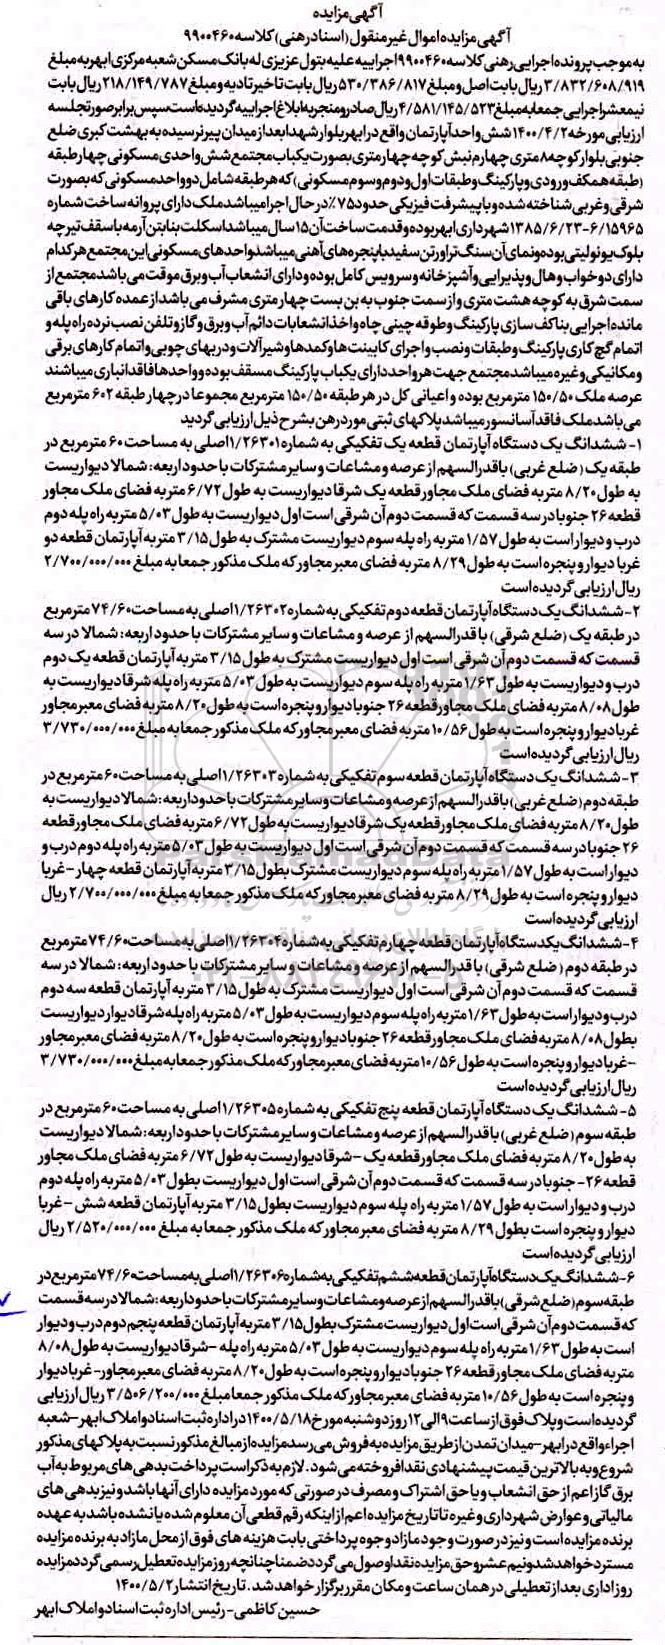 آگهی مزایده
آگهی مزایده اموال غیر منقول (اسناد رهنی) کلاسه ۹۹۰۰۴۶۰
به موجب پرونده اجرایی رهنی کلاسه ۹۹۰۰۴۶۰ اجراییه علیه بتول عزیزی له بانک مسکن شعبه مرکزی ابهر به مبلغ
۳/۸۳۲/۶۰۸/۹۱۹ ریال بابت اصل و مبلغ ۵۳۰/۳۸۶/۸۱۷ ریال بابت تاخیر تادیه و مبلغ ۲۱۸/۱۴۹/۷۸۷ ریال بابت
نیم عشر اجرایی جمعا به مبلغ ۴/۵۸۱/۱۴۵/۵۲۳ ریال صادر و منجر به ابلاغ اجراییه گردیده است سپس برابر صورتجلسه
ارزیابی مورخه ۱۴۰۰/۴/۲ شش واحد آپارتمان واقع در ابهر بلوار شهدا بعد از میدان پیر نرسیده به بهشت کبری ضلع
جنوبی بلوار کوچه ۸ متری چهارم نبش کوچه چهار متری بصورت یکباب مجتمع شش واحدی مسکونی چهار طبقه
(طبقه همکف ورودی و پارکینگ و طبقات اول و دوم و سوم مسکونی) که هر طبقه شامل دو واحد مسکونی که بصورت
شرقی و غربی شناخته شده و با پیشرفت فیزیکی حدود ۷۵٪ در حال اجرا میباشد ملک دارای پروانه ساخت شماره
۶/۱۵۹۶۵-۱۳۸۵/۶/۲۳ شهرداری ابهر بوده و قدمت ساخت آن ۱۵ سال میباشد اسکلت بنا بتن آرمه با سقف تیرچه
بلوک یونولیتی بوده و نمای آن سنگ تراورتن سفید با پنجره های آهنی میباشد واحدهای مسکونی این مجتمع هر کدام
دارای دو خواب و هال و پذیرایی و آشپزخانه و سرویس کامل بوده و دارای انشعاب آب و برق موقت می باشد مجتمع از
سمت شرق به کوچه هشت متری و از سمت جنوب به بن بست چهار متری مشرف می باشد از عمده کارهای باقی
مانده اجرایی بنا کف سازی پارکینگ و طوقه چینی چاه و اخذ انشعابات دائم آب و برق و گاز و تلفن نصب نرده راه پله و
اتمام گچ کاری پارکینگ و طبقات و نصب و اجرای کابینت ها و کمدها و شیرآلات و دربهای چوبی و اتمام کارهای برقی
و مکانیکی و غیره میباشد مجتمع جهت هر واحد دارای یکباب پارکینگ مسقف بوده و واحدها فاقد انباری میباشند
عرصه ملک ۱۵۰/۵۰ مترمربع بوده و اعیانی کل در هر طبقه ۱۵۰/۵۰ مترمربع مجموعا در چهار طبقه ۶۰۲ مترمربع
می باشد ملک فاقد آسانسور میباشد پلاکهای ثبتی مورد رهن بشرح ذیل ارزیابی گردید
۱- ششدانگ یک دستگاه آپارتمان قطعه یک تفکیکی به شماره ۱/۲۶۳۰۱ اصلی به مساحت ۶۰ مترمربع در
طبقه یک (ضلع غربی) باقدرالسهم از عرصه و مشاعات و سایر مشترکات با حدود اربعه: شمالا دیواریست
به طول ۸/۲۰ متر به فضای ملک مجاور قطعه یک شرقا دیواریست به طول ۶/۷۲ متر به فضای ملک مجاور
قطعه ۲۶ جنوبا در سه قسمت که قسمت دوم آن شرقی است اول دیواریست به طول ۵/۰۳ متر به راه پله دوم
درب و دیوار است به طول ۱/۵۷ متر به راه پله سوم دیواریست مشترک به طول ۳/۱۵ متر به آپارتمان قطعه دو
غربا دیوار و پنجره است به طول ۸/۲۹ متر به فضای معبر مجاور که ملک مذکور جمعا به مبلغ ۲/۷۰۰/۰۰۰/۰۰۰
ریال ارزیابی گردیده است
۲- ششدانگ یک دستگاه آپارتمان قطعه دوم تفکیکی به شماره ۱/۲۶۳۰۲ اصلی به مساحت ۷۴/۶۰ مترمربع
در طبقه یک (ضلع شرقی) با قدرالسهم از عرصه و مشاعات و سایر مشترکات با حدود اربعه: شمالا در سه
قسمت که قسمت دوم آن شرقی است اول دیواریست مشترک به طول ۳/۱۵ متر به آپارتمان قطعه یک دوم
درب و دیواریست به طول ۱/۶۳ متر به راه پله سوم دیواریست به طول ۵/۰۳ متر به راه پله شرقا دیواریست به
طول ۸/۰۸ متر به فضای ملک مجاور قطعه ۲۶ جنوبا دیوار و پنجره است به طول ۸/۲۰ متر به فضای معبر مجاور
غربا دیوار و پنجره است به طول ۱۰/۵۶ متر به فضای معبر مجاور که ملک مذکور جمعا به مبلغ ۳/۷۳۰/۰۰۰/۰۰۰
ریال ارزیابی گردیده است
۳- ششدانگ یک دستگاه آپارتمان قطعه سوم تفکیکی به شماره ۱/۲۶۳۰۳ اصلی به مساحت ۶۰ مترمربع در
طبقه دوم (ضلع غربی) باقدرالسهم از عرصه و مشاعات و سایر مشترکات با حدود اربعه: شمالا دیواریست به
طول ۸/۲۰ متر به فضای ملک مجاور قطعه یک شرقا دیواریست به طول ۶/۷۲ متر به فضای ملک مجاور قطعه
۲۶ جنوبا در سه قسمت که قسمت دوم آن شرقی است اول دیواریست به طول ۵/۰۳ متر به راه پله دوم درب و
دیوار است به طول ۱/۵۷ متر به راه پله سوم دیواریست مشترک بطول ۳/۱۵ متر به آپارتمان قطعه چهار -غربا
دیوار و پنجره است به طول ۸/۲۹ متر به فضای معبر مجاور که ملک مذکور جمعا به مبلغ ۲/۷۰۰/۰۰۰/۰۰۰ ریال
ارزیابی گردیده است
۴- ششدانگ یکدستگاه آپارتمان قطعه چهارم تفکیکی به شماره ۱/۲۶۳۰۴ اصلی به مساحت ۷۴/۶۰ مترمربع
در طبقه دوم (ضلع شرقی) با قدرالسهم از عرصه و مشاعات و سایر مشترکات با حدود اربعه: شمالا در سه
قسمت که قسمت دوم آن شرقی است اول دیواریست مشترک به طول ۳/۱۵ متر به آپارتمان قطعه سه دوم
درب و دیوار است به طول ۱/۶۳ متر به راه پله سوم دیواریست به طول ۵/۰۳ متر به راه پله شرقا دیوار دیواریست
بطول ۸/۰۸ متر به فضای ملک مجاور قطعه ۲۶ جنوبا دیوار و پنجره است به طول ۸/۲۰ متر به فضای معبر مجاور
-غربا دیوار و پنجره است به طول ۱۰/۵۶ متر به فضای معبر مجاور که ملک مذکور جمعا به مبلغ ۳/۷۳۰/۰۰۰/۰۰۰
ریال ارزیابی گردیده است
۵- ششدانگ یک دستگاه آپارتمان قطعه پنج تفکیکی به شماره ۱/۲۶۳۰۵ اصلی به مساحت ۶۰ مترمربع در
طبقه سوم (ضلع غربی) باقدرالسهم از عرصه و مشاعات و سایر مشترکات با حدود اربعه: شمالا دیواریست
به طول ۸/۲۰ متر به فضای ملک مجاور قطعه یک -شرقا دیواریست به طول ۶/۷۲ متر به فضای ملک مجاور
قطعه ۲۶- جنوبا در سه قسمت که قسمت دوم آن شرقی است اول دیواریست بطول ۵/۰۳ متر به راه پله دوم
درب و دیوار است به طول ۱/۵۷ متر به راه پله سوم دیواریست بطول ۳/۱۵ متر به آپارتمان قطعه شش -غربا
دیوار و پنجره است بطول ۸/۲۹ متر به فضای معبر مجاور که ملک مذکور جمعا به مبلغ ۲/۵۲۰/۰۰۰/۰۰۰ ریال
ارزیابی گردیده است
۶- ششدانگ یک دستگاه آپارتمان قطعه ششم تفکیکی به شماره ۱/۲۶۳۰۶ اصلی به مساحت ۷۴/۶۰ مترمربع در
طبقه سوم (ضلع شرقی) باقدرالسهم از عرصه و مشاعات و سایر مشترکات با حدود اربعه: شمالا در سه قسمت
که قسمت دوم آن شرقی است اول دیواریست مشترک بطول ۳/۱۵ متر به آپارتمان قطعه پنجم دوم درب و دیوار
است به طول ۱/۶۳ متر به راه پله سوم دیواریست به طول ۵/۰۳ متر به راه پله -شرقا دیواریست به طول ۸/۰۸
متر به فضای ملک مجاور قطعه ۲۶ جنوبا دیوار و پنجره است به طول ۸/۲۰ متر به فضای معبر مجاور-غربا دیوار
و پنجره است به طول ۱۰/۵۶ متر به فضای معبر مجاور که ملک مذکور جمعا مبلغ ۳/۵۰۶/۲۰۰/۰۰۰ ریال ارزیابی
گردیده است و پلاک فوق از ساعت ۹ الی ۱۲ روز دوشنبه مورخ ۱۴۰۰/۵/۱۸ در اداره ثبت اسناد و املاک ابهر-شعبه
اجرا واقع در ابهر -میدان تمدن از طریق مزایده به فروش می رسد مزایده از مبالغ مذکور نسبت به پلاکهای مذکور
شروع و به بالاترین قیمت پیشنهادی نقدا فروخته می شود. لازم به ذکر است پرداخت بدهی های مربوط به آب
برق گاز اعم از حق انشعاب و یا حق اشتراک و مصرف در صورتی که مورد مزایده دارای آنها باشد و نیز بدهی های
مالیاتی و عوارض شهرداری و غیره تا تاریخ مزایده اعم از اینکه رقم قطعی آن معلوم شده یا نشده باشد به عهده
برنده مزایده است و نیز در صورت وجود مازاد وجوه پرداختی بابت هزینه های فوق از محل مازاد به برنده مزایده
مسترد خواهد شد و نیم عشر و حق مزایده نقدا وصول می گردد ضمنا چنانچه روز مزایده تعطیل رسمی گردد مزایده
روز اداری بعد از تعطیلی در همان ساعت و مکان مقرر برگزار خواهد شد. تاریخ انتشار ۱۴۰۰/۵/۲
حسین کاظمی- رئیس اداره ثبت اسناد و املاک ابهر